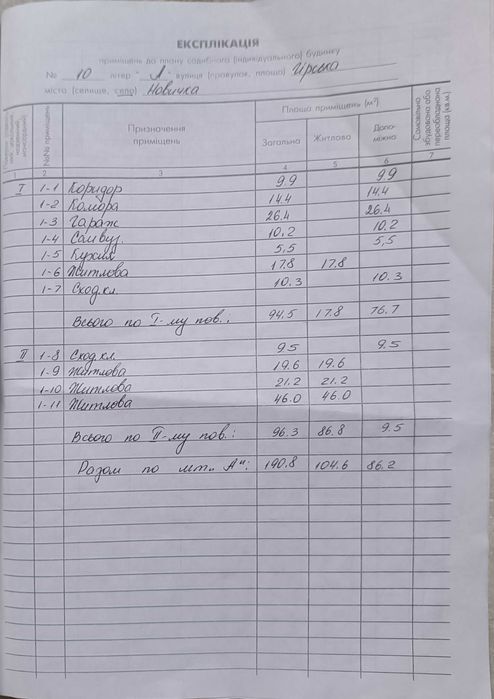 ЕКСПЛІКАЦІЯ
приміщень до плану садибного (індивідуального) будинку
№ 10 літер "А" вулиця (провулок, площа) Гірська
місто (селище, село) Новичка
№№ приміщень
Призначення приміщень
Площа приміщень (м²)
Загальна Житлова Допоміжна
Самовільно збудована або переобладнана площа (кв.м)
1 2 3 4 5 6 7
I 1-1 Коридор 9.9 9.9
1-2 Комора 14.4 14.4
1-3 Гараж 26.4 26.4
1-4 Сан.вуз. 10,2 10.2
1-5 Кухня 5,5 5,5
1-6 Житлова 17.8 17.8
1-7 Сход.кл. 10.3 10.3
Всього по I-му пов.: 94.5 17.8 76.7
II 1-8 Сход.кл. 9.5 9.5
1-9 Житлова 19.6 19.6
1-10 Житлова 21.2 21.2
1-11 Житлова 46.0 46.0
Всього по II-му пов.: 96.3 86.8 9.5
Разом по літ. "А": 190.8 104.6 86.2